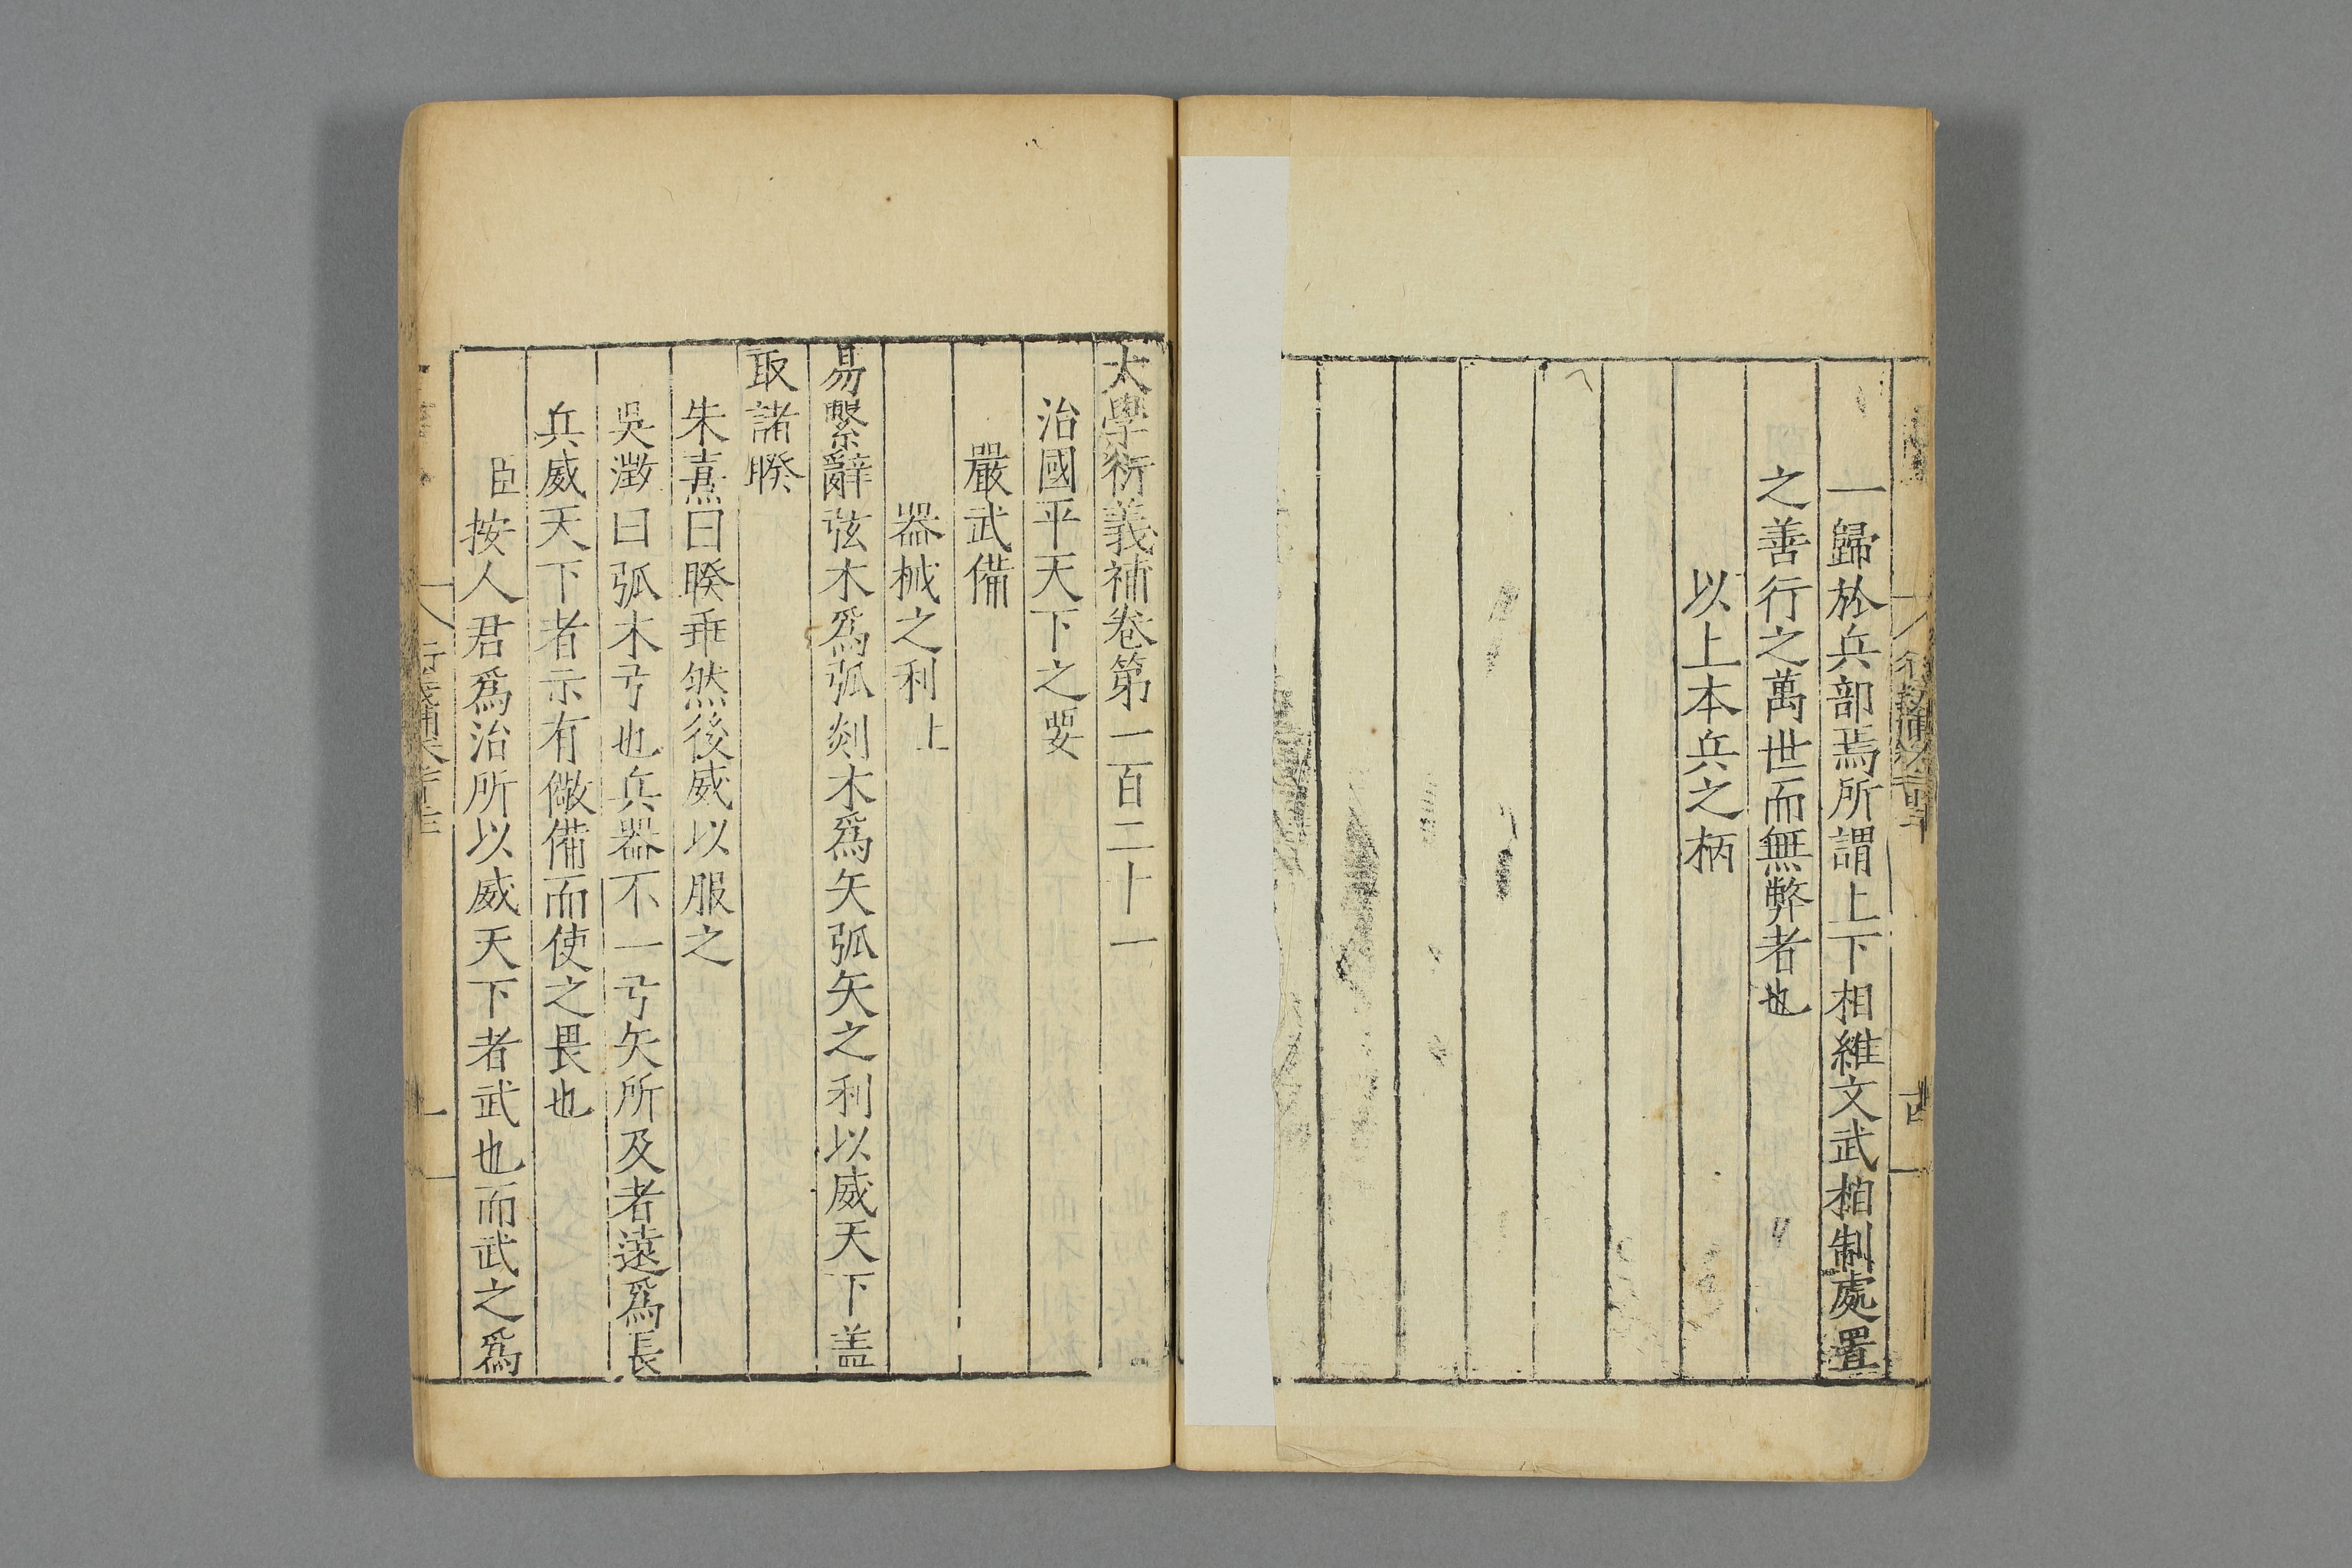 一歸於兵部焉所謂上下相維文武相制處置
之善行之萬世而無弊者也
以上本兵之柄
大學衍義補卷第一百二十一
治國平天下之要
嚴武備
器械之利上
易繫辭弦木爲弧剡木爲矢弧矢之利以威天下盖
取諸睽
朱熹曰睽乖然後威以服之
吳澂曰弧木弓也兵器不一弓矢所及者遠爲長
兵威天下者示有儆備而使之畏也
臣按人君爲治所以威天下者武也而武之爲